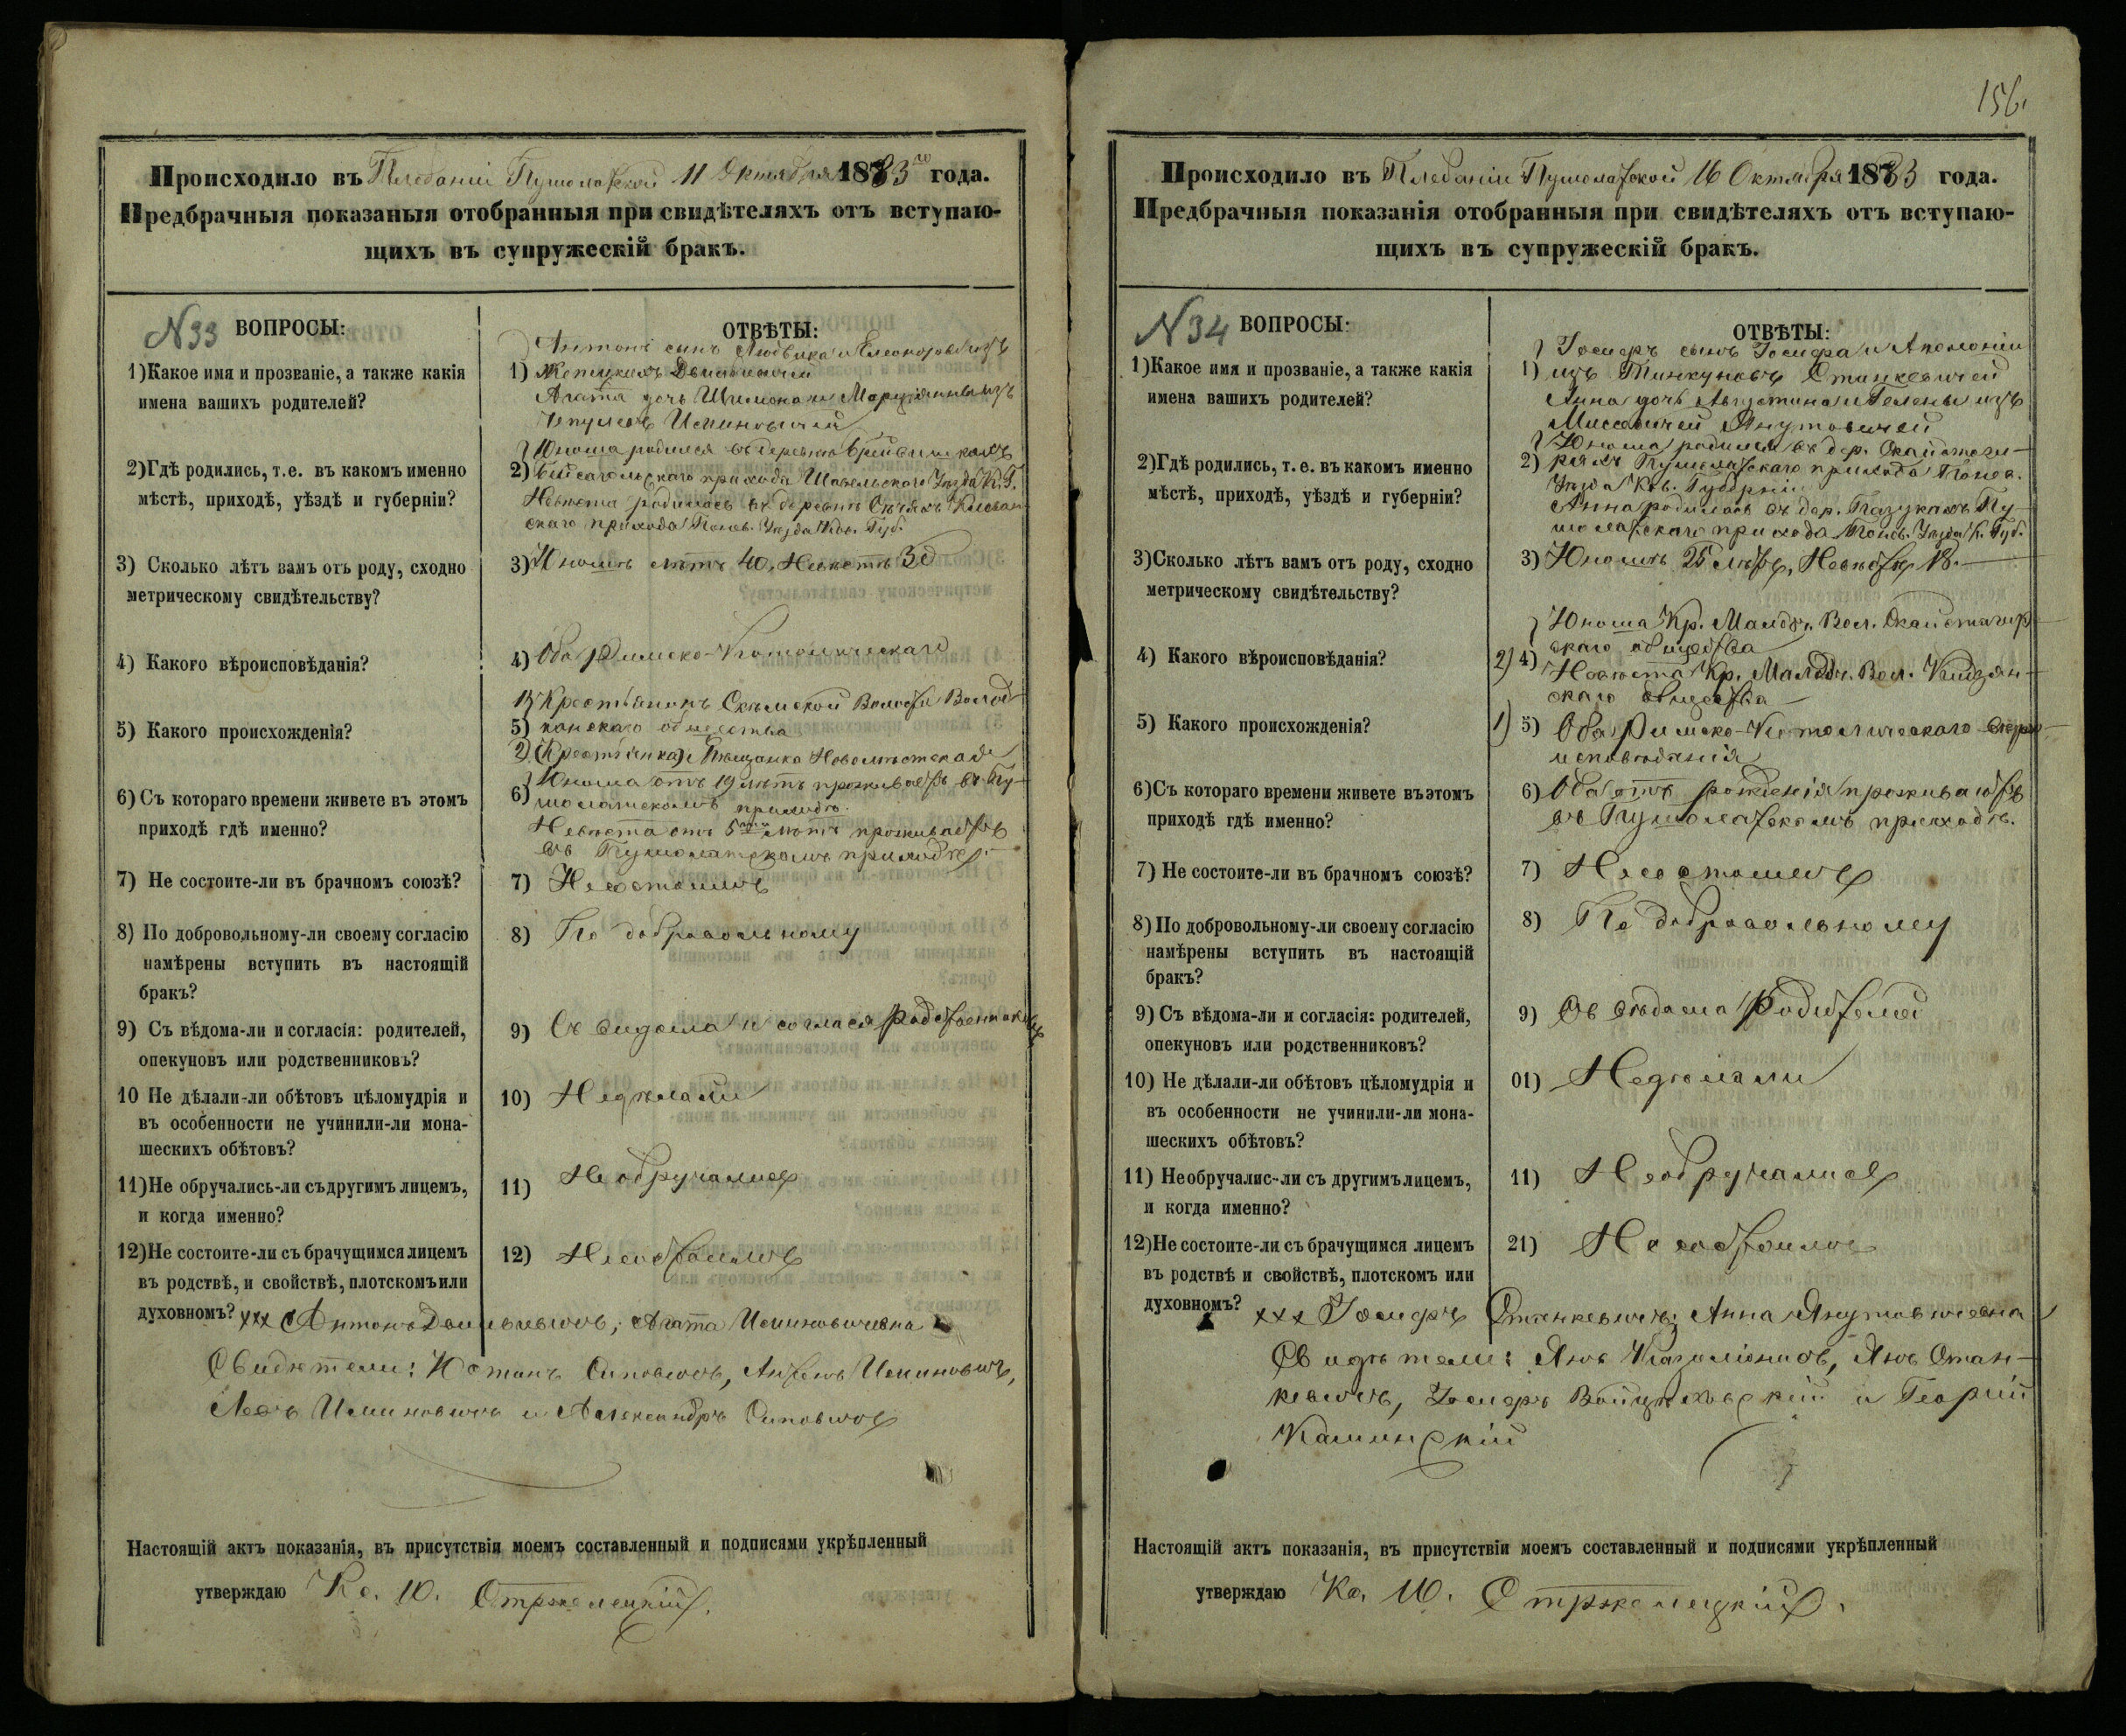 Происходило въ Плебаніи Пушолатской 11 Октября 1883 го года.
Предбрачныя показаныя отобранныя при свидѣтеляхъ отъ вступаю-
щихъ въ супружескій бракъ.
N 33 ВОПРОСЫ:
ОТВѢТЫ:
1) Какое имя и прозваніе, а также какія
имена вашихъ родителей?
1) Антонъ сынъ Людвика и Елеоноры изъ
Агата дочь Шимона и Марціянны изъ
2) Гдѣ родились, т. е. въ какомъ именно
мѣстѣ, приходѣ, уѣздѣ и губерніи?
2) Юноша родился въ деревнѣ
прихода Шавельскаго Уѣзда К. Г.
Невѣста родилась въ деревнѣ
скаго прихода Понев. Уѣзда Ков. Губ.
3) Сколько лѣтъ вамъ отъ роду, сходно
метрическому свидѣтельству?
3) Юношѣ лѣтъ 40, Невѣстѣ 30
4) Какого вѣроисповѣданія?
4) Оба Римско-Католическаго
5) Какого происхожденія?
1) Крестьянинъ Волости
5) общества
2) (Крестьянка) Мѣщанка
6) Съ котораго времени живете въ этомъ
приходѣ гдѣ именно?
6) Юноша отъ 19 лѣтъ проживаетъ въ Пу-
шолатскомъ приходѣ.
Невѣста отъ 5 лѣтъ проживаетъ
въ Пушолатскомъ приходѣ.
7) Не состоите-ли въ брачномъ союзѣ?
7) Несостоимъ
8) По добровольному-ли своему согласію
намѣрены вступить въ настоящій
бракъ?
8) По добровольному
9) Съ вѣдома-ли и согласія: родителей,
опекуновъ или родственниковъ?
9) Съ видома и согласія
10 Не дѣлали-ли обѣтовъ цѣломудрія и
въ особенности не учинили-ли мона-
шескихъ обѣтовъ?
10) Недѣлали
11) Не обручались-ли съ другимъ лицемъ,
и когда именно?
11) Необручались
12) Не состоите-ли съ брачущимся лицемъ
въ родствѣ, и свойствѣ, плотскомъ или
духовномъ?
12) Несостоимъ
xxx Антонъ Агата
Свидѣтели:
и Александръ
Настоящій актъ показанія, въ присутствіи моемъ составленный и подписями укрѣпленный
утверждаю Кс. Ю. Стржелецкій.
156.
Происходило въ Плебаніи Пушолатской 16 Октября 1883 года.
Предбрачныя показанія отобранныя при свидѣтеляхъ отъ вступаю-
щихъ въ супружескій бракъ.
N 34 ВОПРОСЫ:
ОТВѢТЫ:
1) Какое имя и прозваніе, а также какія
имена вашихъ родителей?
1) Іосифъ сынъ Іосифа и Аполоніи
изъ Станкевичей
Анна дочь Августина и Гелены изъ
Янутовичей
2) Гдѣ родились, т. е. въ какомъ именно
мѣстѣ, приходѣ, уѣздѣ и губерніи?
2) Юноша родился въ дер. Скайстоги-
ряхъ Пушолатскаго прихода Понев.
Уѣзда Ков. Губерніи
Анна родилась въ дер. Пазукахъ Пу-
шолатскаго прихода Понев. Уѣзда К. Губ.
3) Сколько лѣтъ вамъ отъ роду, сходно
метрическому свидѣтельству?
3) Юношѣ 25 лѣтъ, Невѣстѣ 18.
4) Какого вѣроисповѣданія?
Юноша Кр. Вол. Скайстагир-
скаго общества
2) 4) Невѣста Кр. Вол.
скаго общества
5) Какого происхожденія?
1) 5) Оба Римско-Католическаго вѣро-
исповѣданія
6) Съ котораго времени живете въ этомъ
приходѣ гдѣ именно?
6) Оба отъ рожденія проживаютъ
въ Пушолатскомъ приходѣ.
7) Не состоите-ли въ брачномъ союзѣ?
7) Несостоимъ
8) По добровольному-ли своему согласію
намѣрены вступить въ настоящій
бракъ?
8) По добровольному
9) Съ вѣдома-ли и согласія: родителей,
опекуновъ или родственниковъ?
9) Съ вѣдома Родителей
10) Не дѣлали-ли обѣтовъ цѣломудрія и
въ особенности не учинили-ли мона-
шескихъ обѣтовъ?
01) Недѣлали
11) Не обручалис-ли съ другимъ лицемъ,
и когда именно?
11) Необручались
12) Не состоите-ли съ брачущимся лицемъ
въ родствѣ и свойствѣ, плотскомъ или
духовномъ?
21) Несостоимъ
xxx Іосифъ Станкевичъ; Анна Янутовичевна
Свидѣтели: Янъ Янъ Стан-
кевичъ, Іосифъ Войцѣховскій и Георгій
Каминскій
Настоящій актъ показанія, въ присутствіи моемъ составленный и подписями укрѣпленный
утверждаю Кс. Ю. Стржелецкій.